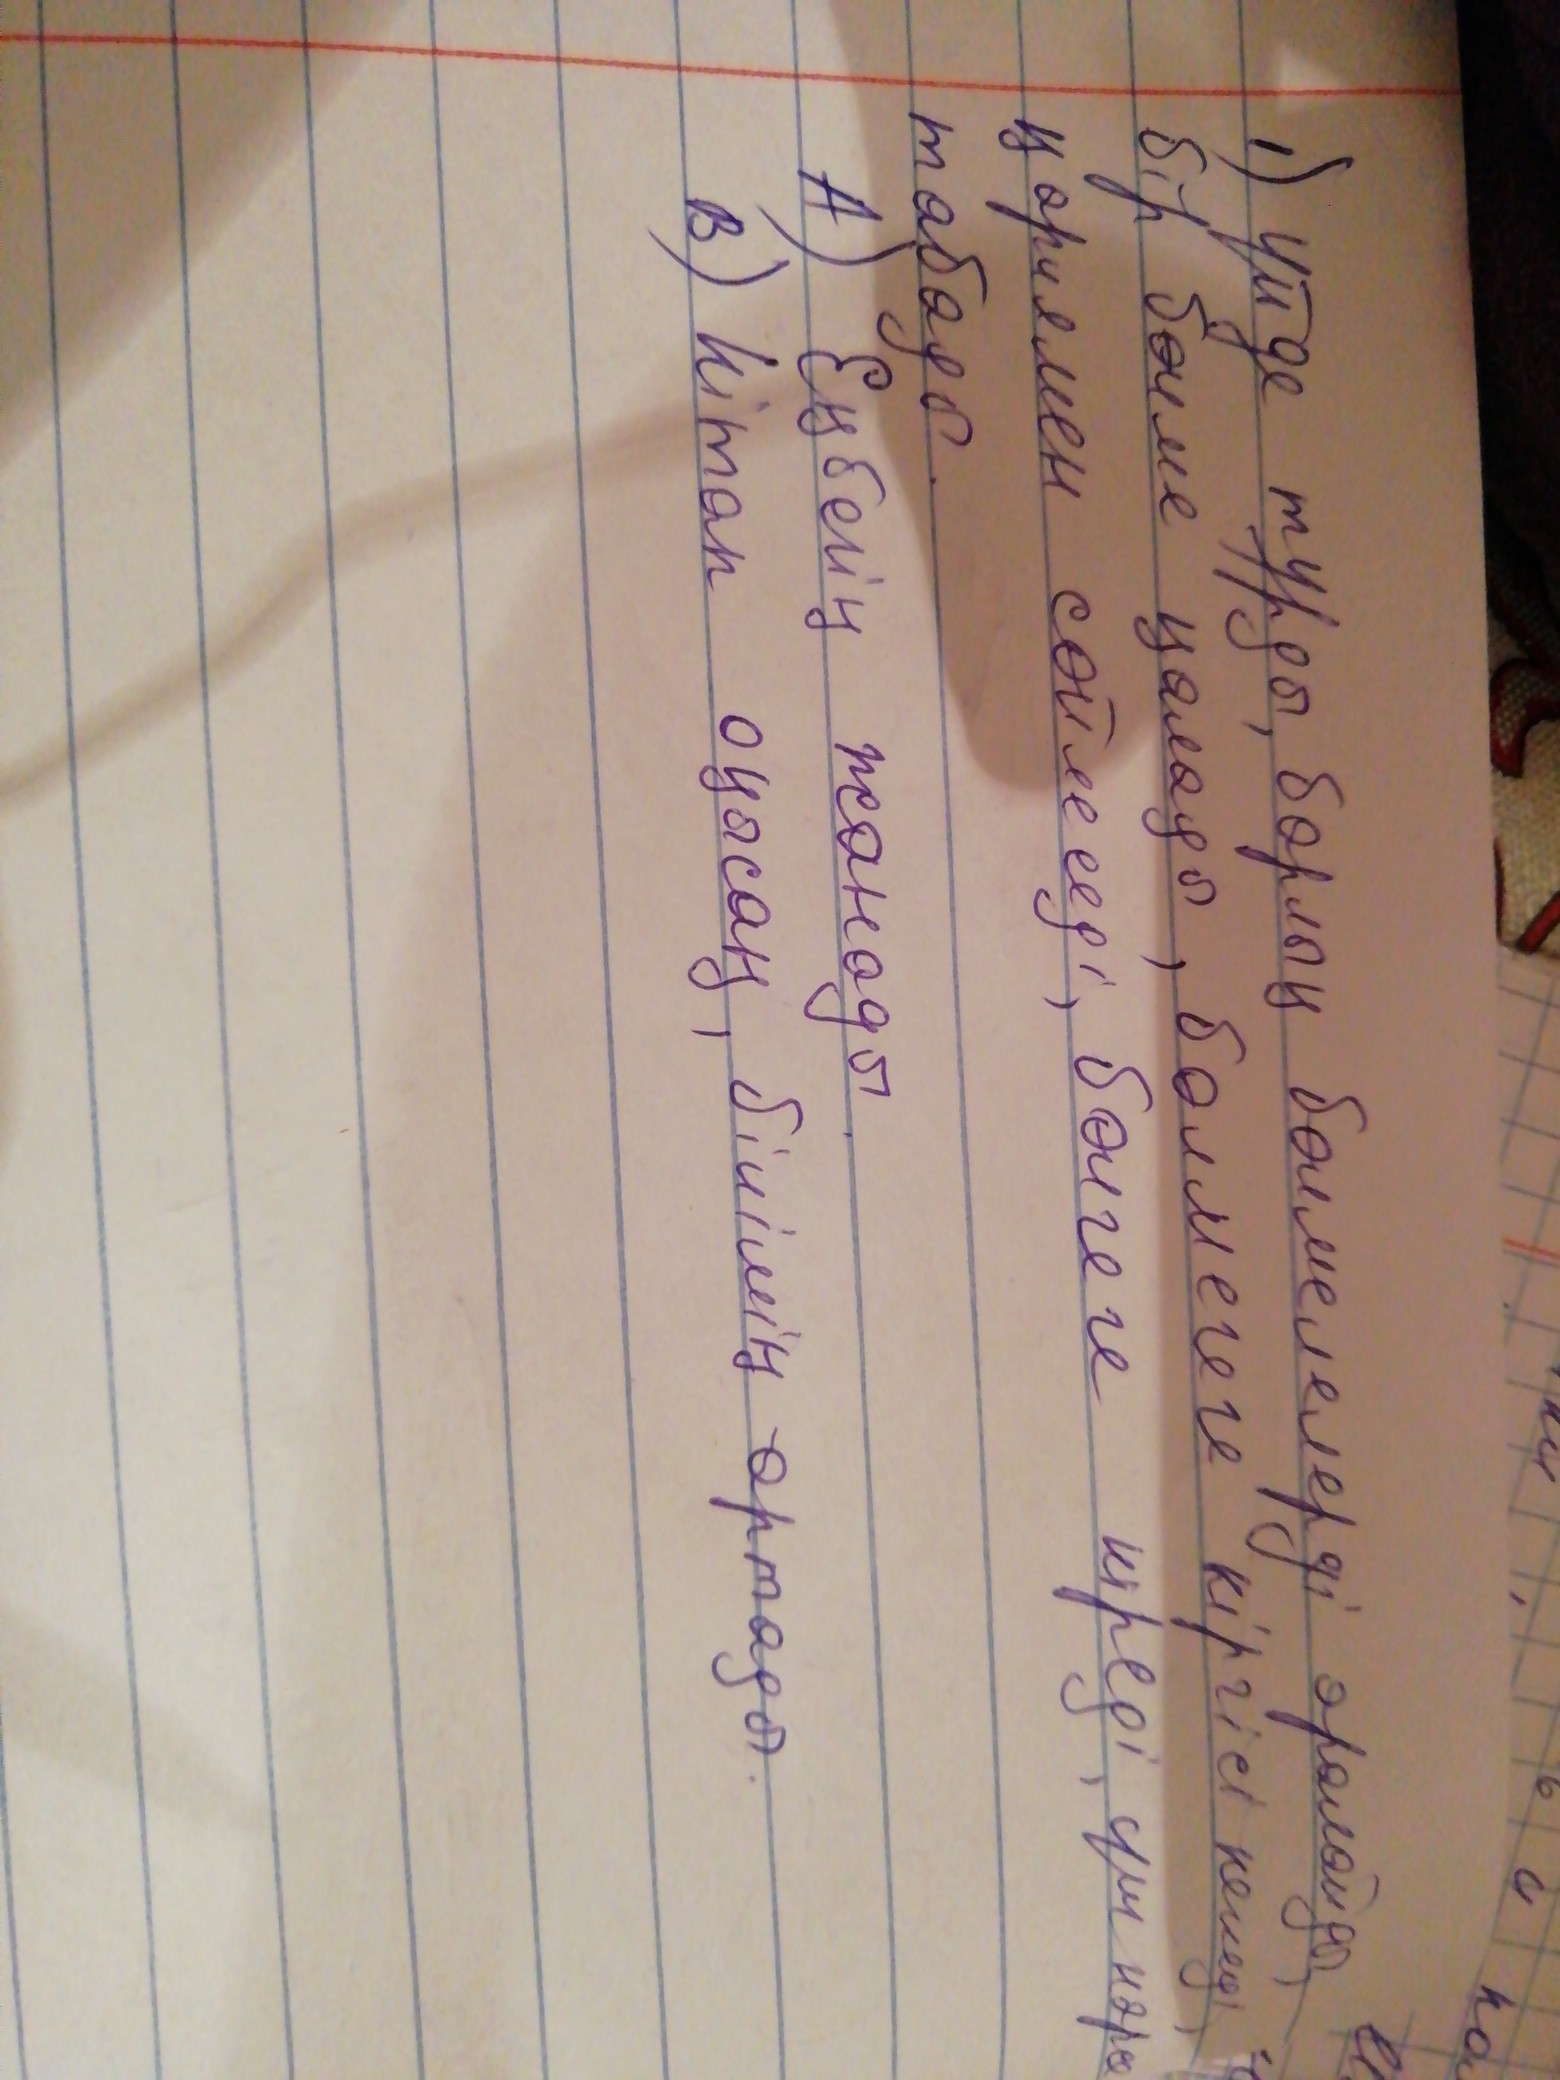 1) Үйде тұрды, барлық бөлмелерді аралайды,
бір бөлме қалады, бөлмеге кіргісі келеді,
қариямен сөйлеседі, бөлгеге кіреді,
табады.
А) Еңбегің жанады.
В) Кітап оқысаң, білімің артады.